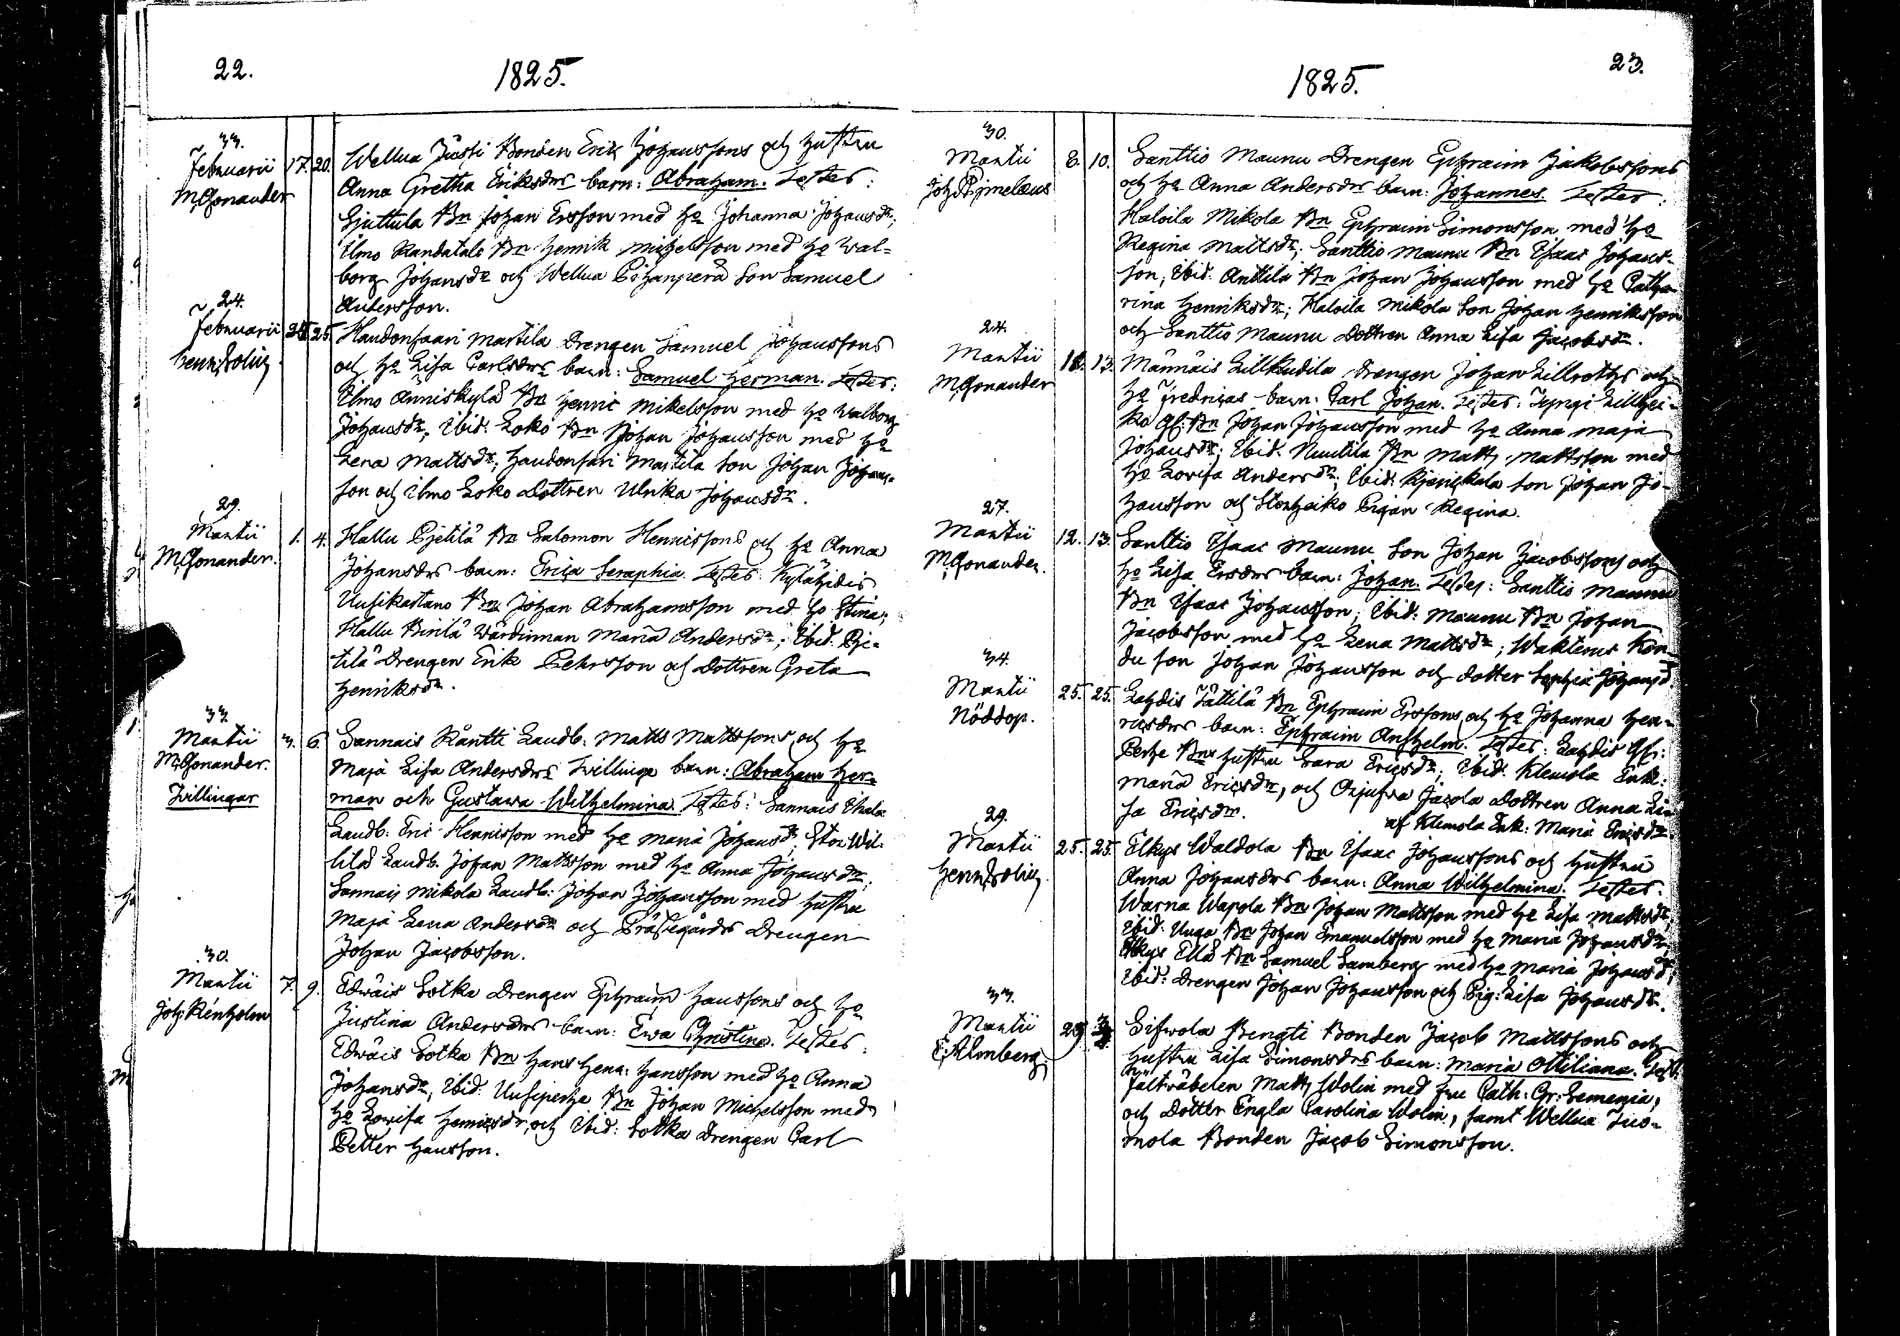 22.
1825.
33.
Februarii 17. 20. Wellua Jussi Bonden Erik Johanssons och hustru
M. Gonander Anna Gretha Eriksdrs barn: Abraham. Testes:
Sjuttula Bn Johan Ersson med ho Johanna Johansdr;
Ilmo Randatalo Bn Henrik Michelsson med ho Wal-
borg Johansdr och Wellua Pohanperä Son Samuel
Andersson.
24.
Februarii 25. Haudonsaari Martila Drengen Samuel Johanssons
och ho Lisa Carlsdrs barn: Samuel Herman. Testes:
Ilmo Anniskylä Bn Henric Mikelsson med ho Walborg
Johansdr, Ibid. Loko Bn Johan Johansson med ho
Lena Mattsdr; Haudonsari Martila Son Johan Johans-
son och Ilmo Loko Dottren Ulrika Johansdr.
29.
Martii 1. 4. Hallu Pjetilä Bn Salomon Henrissons och ho Anna
M. Gonander. Johansdrs barn: Erica Seraphia. Testes: Kylähidis
Uusikartano Bn Johan Abrahamsson med ho Stina;
Hallu Kintä Värdinnan Maria Andersdr; Ibid. Pje-
tilä Drengen Erik Pehrsson och Dottren Greta
Henriksdr.
33.
Martii 3. 6. Sannais Räntti Landb. Matts Mattssons och ho
M. Gonander. Maja Lisa Andersdrs Twillinge barn: Abraham Her-
Zwillingar man och Gustawa Wilhelmina. Testes: Sannais
Landb. Eric Henrisson med ho Maria Johansdr; Stor Wil-
lilä Landb. Johan Mattsson med ho Anna Johansdr;
Sannais Mikola Landb: Johan Johansson med hustru
Maja Lena Andersdr och Prästegårds Drengen
Johan Jacobsson.
30.
Martii 7. 9. Edwäis Sotka Drengen Ephraim Hanssons och ho
Joh. Renholm Justina Andersdrs barn: Ewa Christina. Testes:
Edwäis Sotka Bn Hans Henr: Hansson med ho Anna
Johansdr, Ibid. Uusiperhe Bn Johan Michelsson med
ho Lowisa Henricsdr, och Ibid: Sotka Drengen Carl
Petter Hansson.
23.
1825.
30.
Martii 8. 10. Santtio Maunu Drengen Ephraim Jakobssons
och ho Anna Andersdrs barn: Johannes. Testes:
Haloila Mikola Bn Ephraim Simonsson med ho
Regina Mattsdr; Santtio Maunu Bn Isaac Johans-
son, Ibid. Anttila Bn Johan Johansson med ho Catha-
rina Henriksdr; Haloila Mikola Son Johan Henriksson
och Santtio Maunu Dottren Anna Lisa Jacobsdr.
24.
Martii 13. Männäis Lillkudila Drengen Johan Lillroths och
M. Gonander ho Fredricas barn: Carl Johan. Testes: Lillhei-
ko Bn Johan Johansson med ho Anna Maja
Johansdr; Ibid. Nuutila Bn Matts Mattsson med
ho Lovisa Andersdr; Ibid. Son Johan Jo-
hansson och Storheiko Pigan Regina.
27.
Martii 12. 13. Santtio Isaac Maunu Son Johan Jacobssons och
M. Gonander. ho Lisa Ersdrs barn: Johan. Testes: Santtio Maunu
Bn Isaac Johansson; Ibid. Maunu Bn Johan
Jacobsson med ho Lena Mattsdr; Wakterus Kon-
du son Johan Johansson och dotter Sophia Johansdr
34.
Martii 25. 25. Lahdis Jättilä Bn Ephraim Erssons och ho Johanna Hen-
Nöddop. ricsdrs barn: Ephraim Anshelm. Testes: Lahdis
Perhe Bns hustru Sara Ericsdr; Ibid. Klemola Enk:
Maria Ericsdr, och Jacola Dottren Anna Li-
sa Ericsdr. af Klemola Enk: Maria Ericsdr
29.
Martii 25. 25. Elkys Waldola Bn Isaac Johanssons och hustru
Anna Johansdrs barn: Anna Wilhelmina. Testes:
Warna Wapola Bn Johan Mattsson med ho Lisa Mattsdr,
Ibid. Unga Bn Johan Emanuelsson med ho Maria Johansdr
Elkys Ellä Bn Samuel Samberg med ho Maria Johansdr,
Ibid: Drengen Johan Johansson och Pig: Lisa Johansdr.
33.
Martii Sifwola Bengti Bonden Jacob Mattssons och
E. Almberg hustru Lisa Simonsdrs barn: Maria Ottiliana. Test.
Fältväbelen Matts Wolin med fru Cath: Gr:
och dotter Engla Carolina Wolin, samt Wellua Tuo-
mola Bonden Jacob Simonsson.